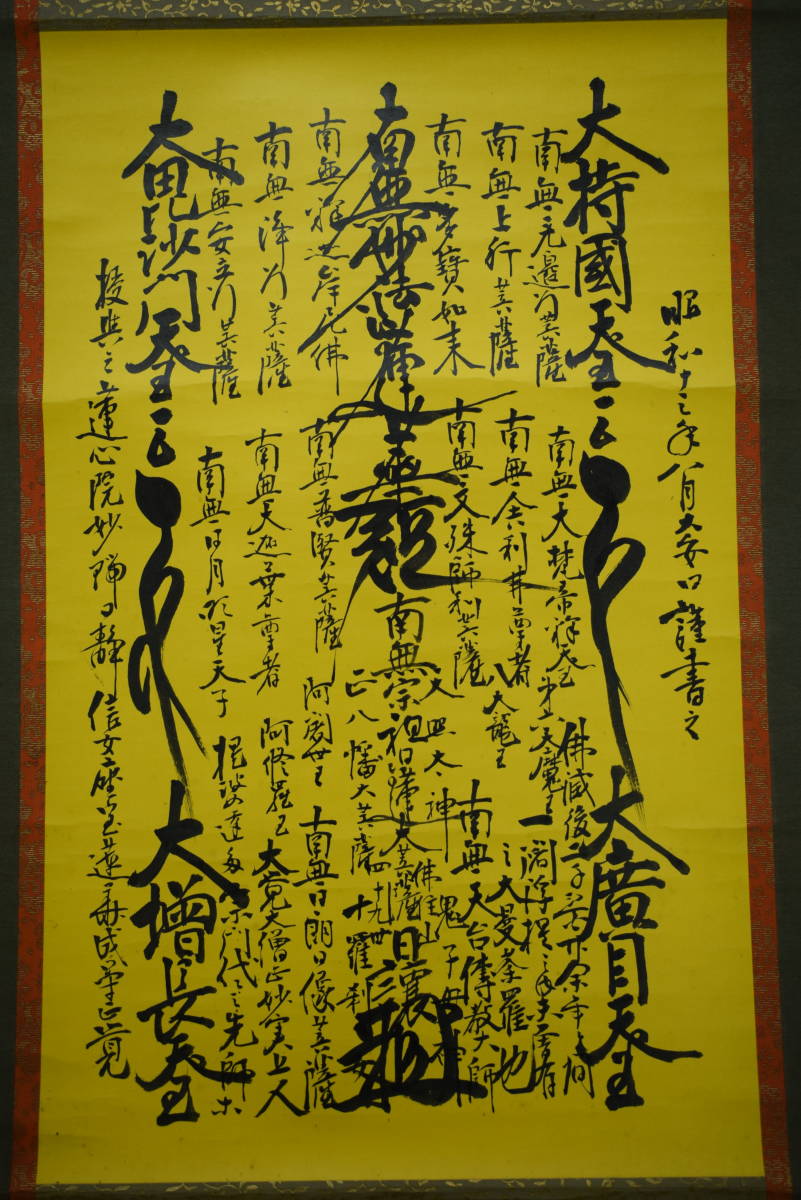 昭和十三年八月大安日謹書之
大持國天王
大廣目天王
南無無邊行菩薩
南無上行菩薩
南無多寶如来
南無妙法蓮華経
南無釋迦牟尼佛
南無浄行菩薩
南無安立行菩薩
大毘沙門天王
大増長天王
南無大梵帝釋天王
第六天魔王
南無舎利弗尊者
八大龍王
南無文殊師利菩薩
天照太神
南無宗祖日蓮大菩薩
南無普賢菩薩
正八幡大菩薩
南無大迦葉尊者
阿闍世王
阿修羅王
南無日月明星天子
提婆達多
佛滅後二千二百廿余年之間
一閻浮提之内未曽有
之大曼荼羅也
南無天台傳教大師
鬼子母神
十羅刹女
南無日朗日像菩薩
大覚大僧正妙実上人
宗門代々先師等
授與之蓮心院妙 日静信女座宝蓮華成等正覚